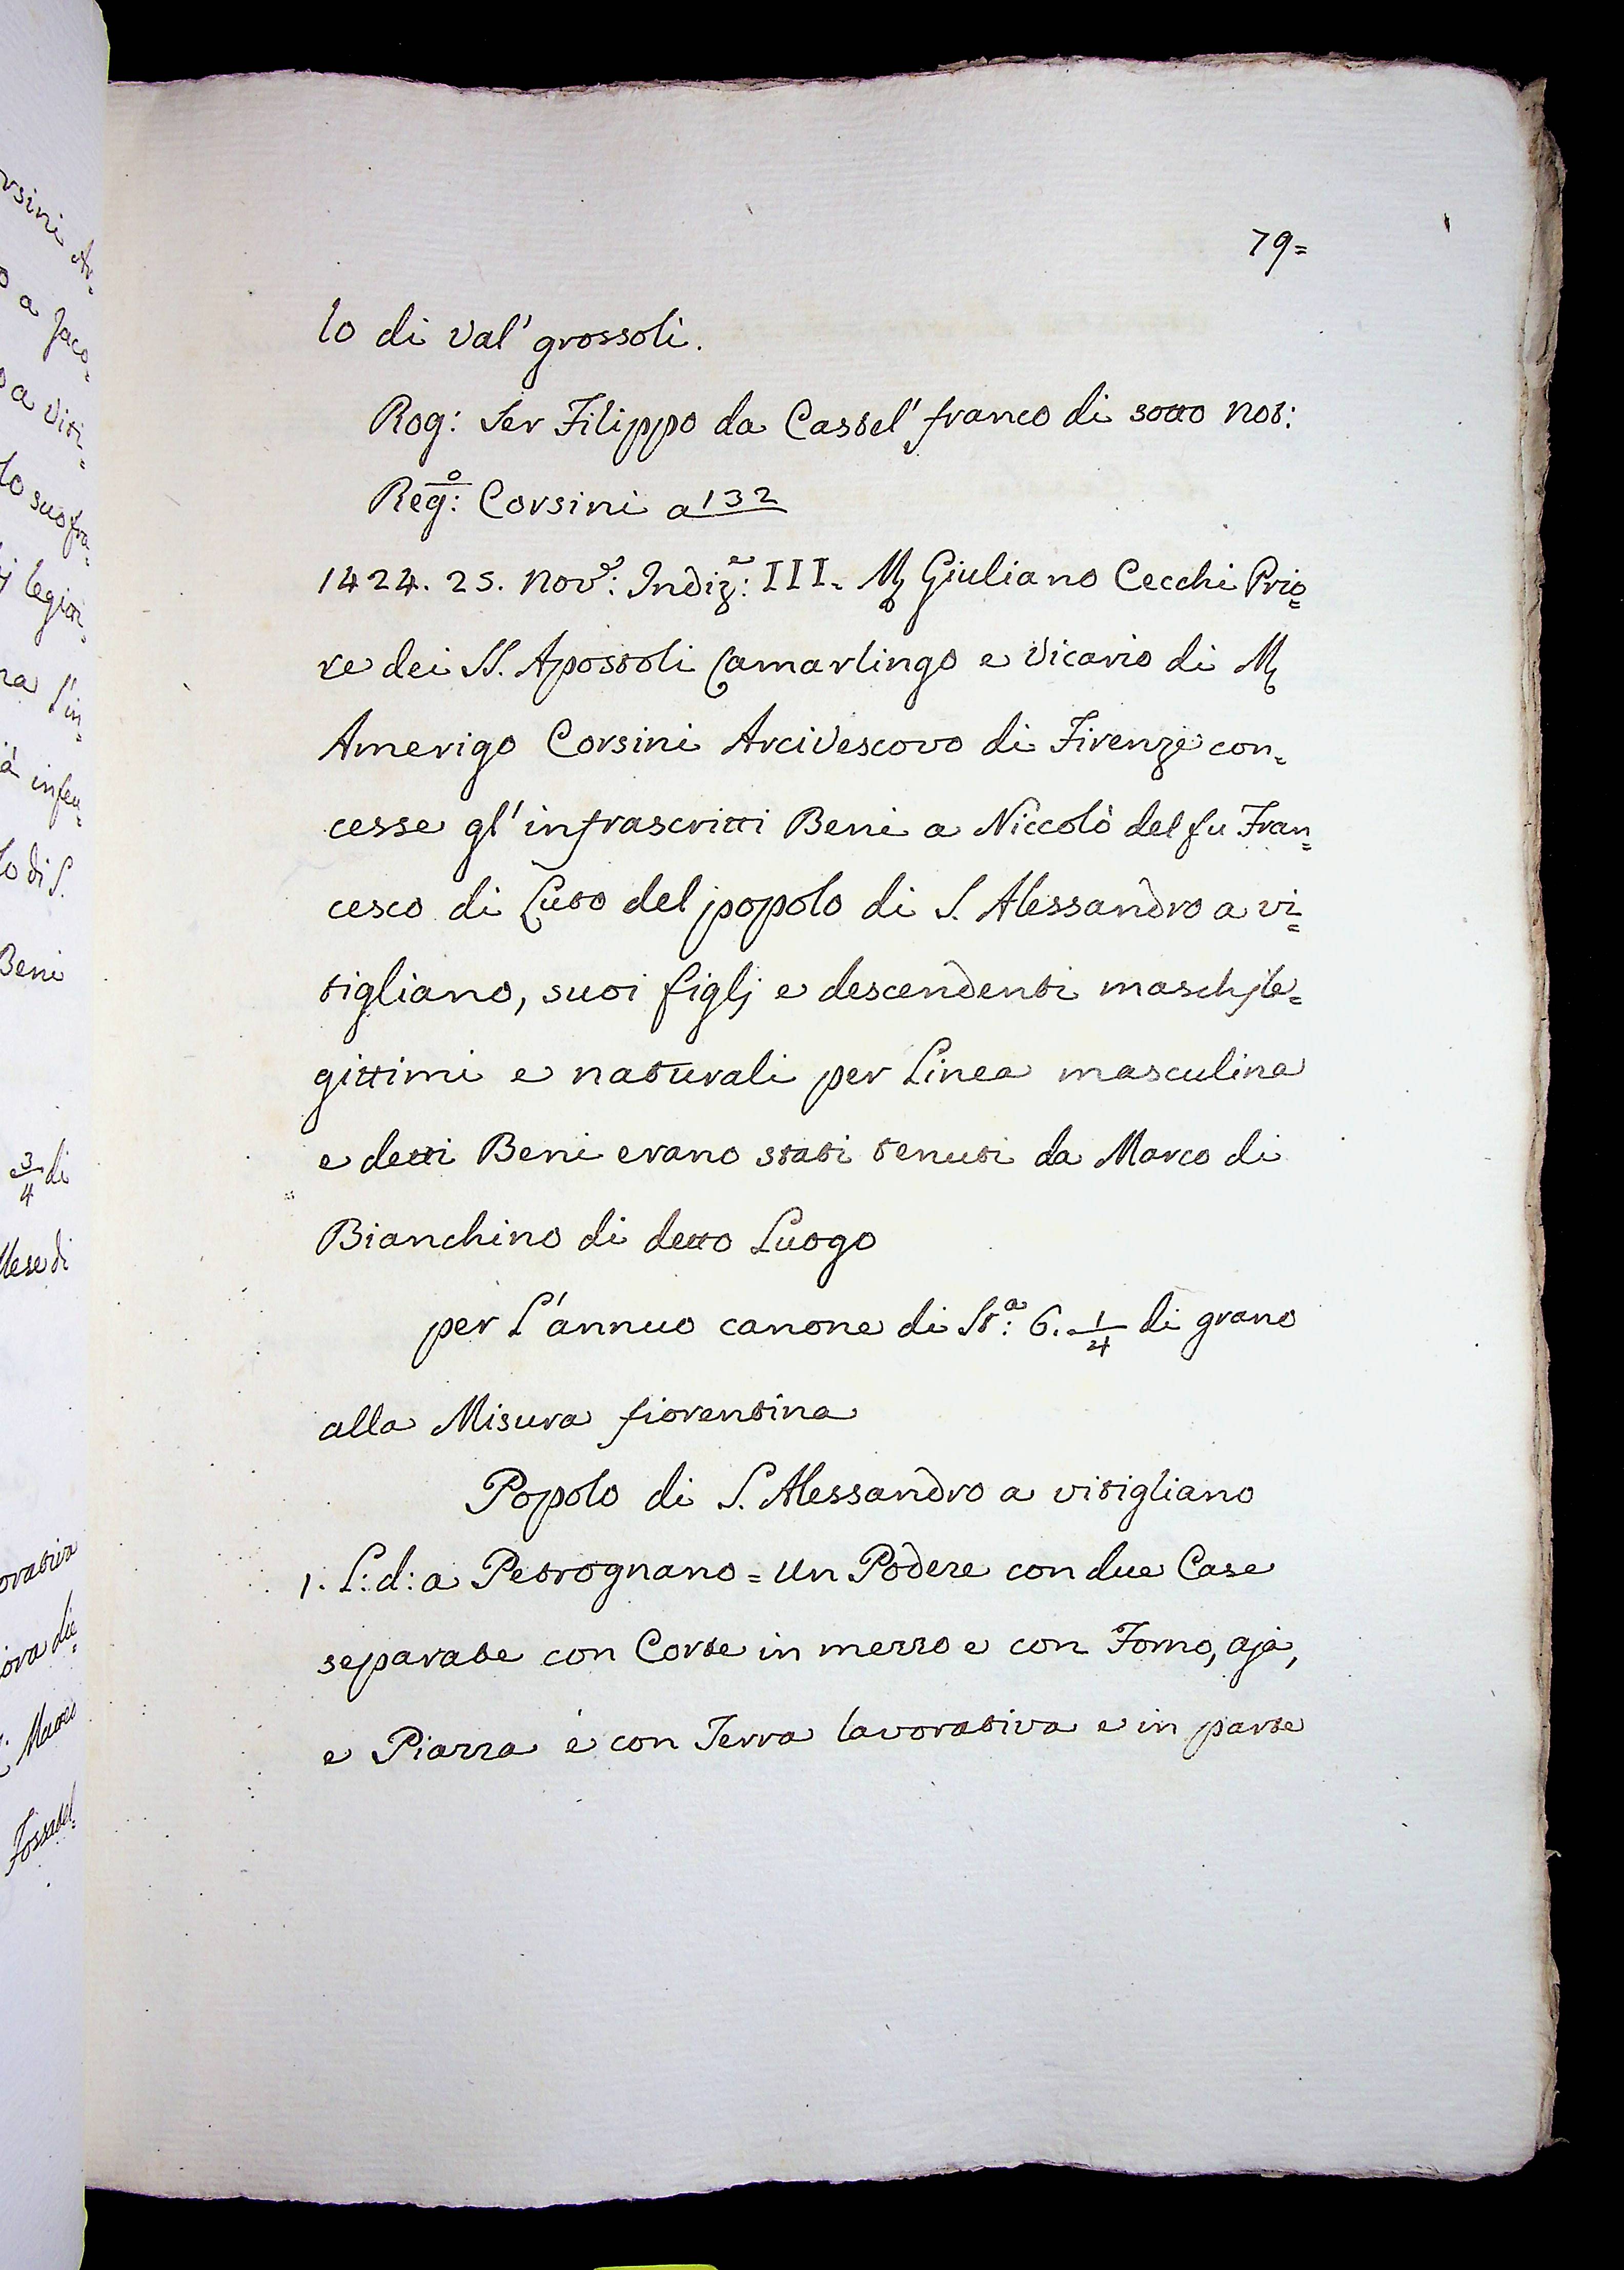 79=
lo di Val' grossoli.
Rog: Ser Filippo da Castel' franco di sotto Not:
Reg:o Corsini a 132
1424. 25. Nov.e: Indiz:e III. M. Giuliano Cecchi Prio=
re dei SS. Apostoli Camarlingo e Vicario di M.
Amerigo Corsini Arcivescovo di Firenze con=
cesse gl' infrascritti Beni a Niccolò del fu Fran=
cesco di Luto del popolo di S. Alessandro a vi=
tigliano, suoi figlj e descendenti maschj le=
gittimi e naturali per Linea masculina
e detti Beni erano stati tenuti da Marco di
Bianchino di detto Luogo
per L'annuo canone di St:a 6. 1/4 di grano
alla Misura fiorentina
Popolo di S. Alessandro a vitigliano
1. L: d: a Petrognano = Un Podere con due Case
separate con Corte in mezzo e con Forno, aja,
e Piazza e con Terra lavorativa e in parte